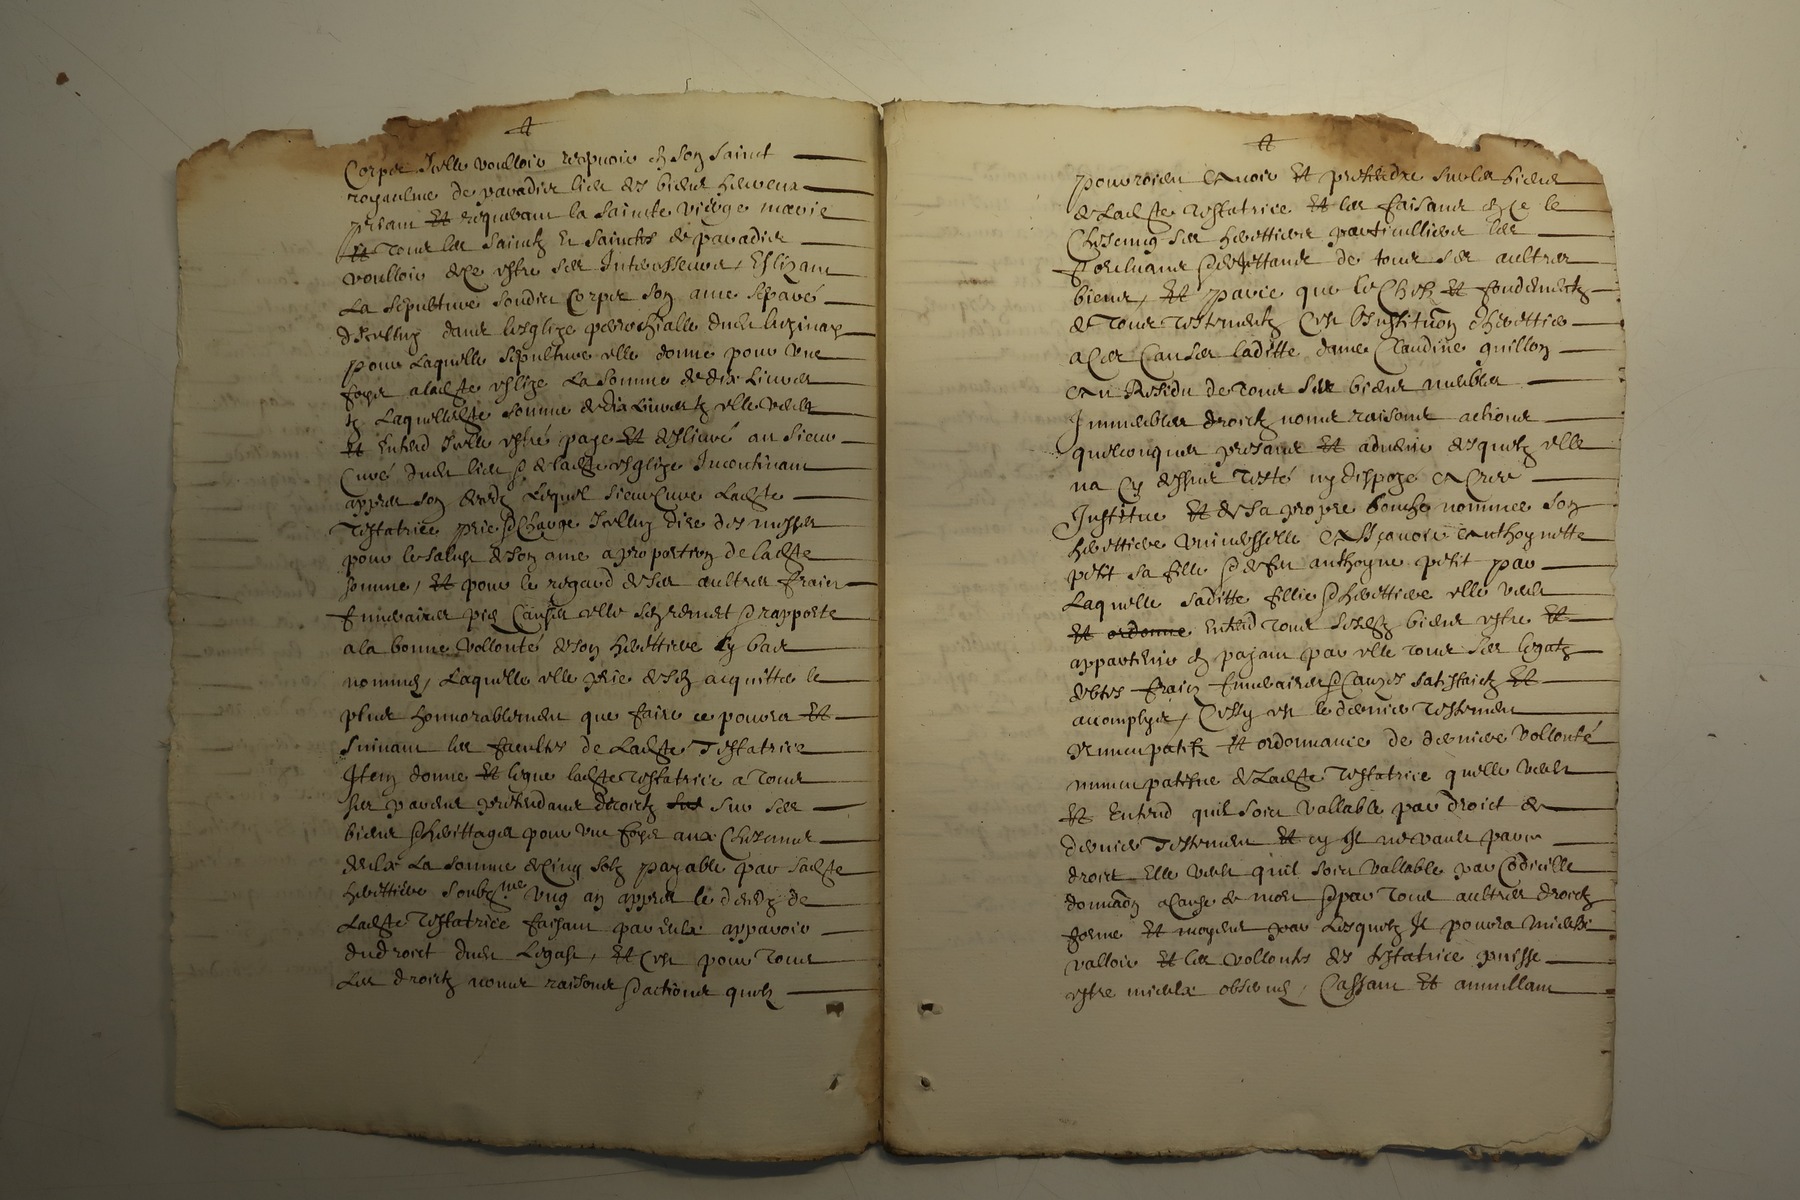 Corps Icelle voulloir repvoir en son sainct
royaulme de paradis lieu des biens heureux
priant Et requerant la saincte vierge marie
Et tous les sainctz Et sainctes de paradis
voulloir de ce estre ses Intercesseurs, Eslizant
La sepulture soudict Corps son ame separé
dicelluy dans lesglize parrochialle dudict
pour Laquelle sepulture elle donne pour une
foys a ladicte esglize La somme de dix Livres
tz Laquelle dicte somme de dix livres tz elle veult
Et Entend Icelle estre payé Et deslivré au sieur
Curé dudict lieu & de ladicte esglize Incontinant
appres son decedz Lequel sieur Curé Ladicte
Testatrice prie & Charge Icelluy dire des messes
pour le salut de son ame a proportion de ladicte
somme, Et pour le regard de ses aultres fraiz
funeraires pies Causes elle sen remet & rapporte
a la bonne vollonté de son herettiere cy bas
nommée, Laquelle elle prie de sen acquitter le
plus honnorablement que faire ce pourra Et
suivant les facultes de Ladicte Testatrice
Item donne Et legue ladicte testatrice a tous
ses parens pretendans droictz sur ses
biens & herittages pour une foys aux Chescungs
deulx La somme de Cinq solz payable par sadicte
herettiere ung an appres le decedz de
Ladicte testatrice faisant par eulx apparoir
du droict dudict Legast, Et Cest pour tous
Les droictz noms raisons & actions quilz
pourroient Avoir Et pretendre sur les biens
de Ladicte testatrice Et les faisant en ce le
Chescung ses herettiers particulliers les
forcluant & dejettant de tous ses aultres
biens, Et parce que le Chefz Et fondementz
de tous testementz Cest linstitution dherettier
a Ces Causes laditte dame Claudine quillon
Au Residu de tous ses biens meubles
Immeubles droictz noms raisons actions
quelconques presans Et advenir desquelz elle
na Cy dessus testé ny disposé A Cree
Institue Et de sa propre bouche nommee son
herettiere universselle Asçavoir Anthoynette
petit sa fille & de feu anthoyne petit par
Laquelle saditte fillie & herettiere elle veult
Et ordonne Entend tous sesdictz biens estre Et
appartenir en payant par elle tous ses legatz
debtes fraiz funeraires & Causes satisfaictz Et
accomplyes, Cecy est le dernier testement
nuncupatifz Et ordonnance de derniere vollonté
nuncupatifve de Ladicte testatrice quelle veult
Et Entend quil soit vallable par droict de
dernier testement Et cy Il ne vault par ce
droict Elle veult quil soit vallable par Codicille
donnaon a Cause de mort & par tous aultres droictz
forme Et moyens par Lesquelz Il pourra mieulx
valloir Et les vollontés des testatrice puisse
estre mieulx observée, Cassant Et annullant